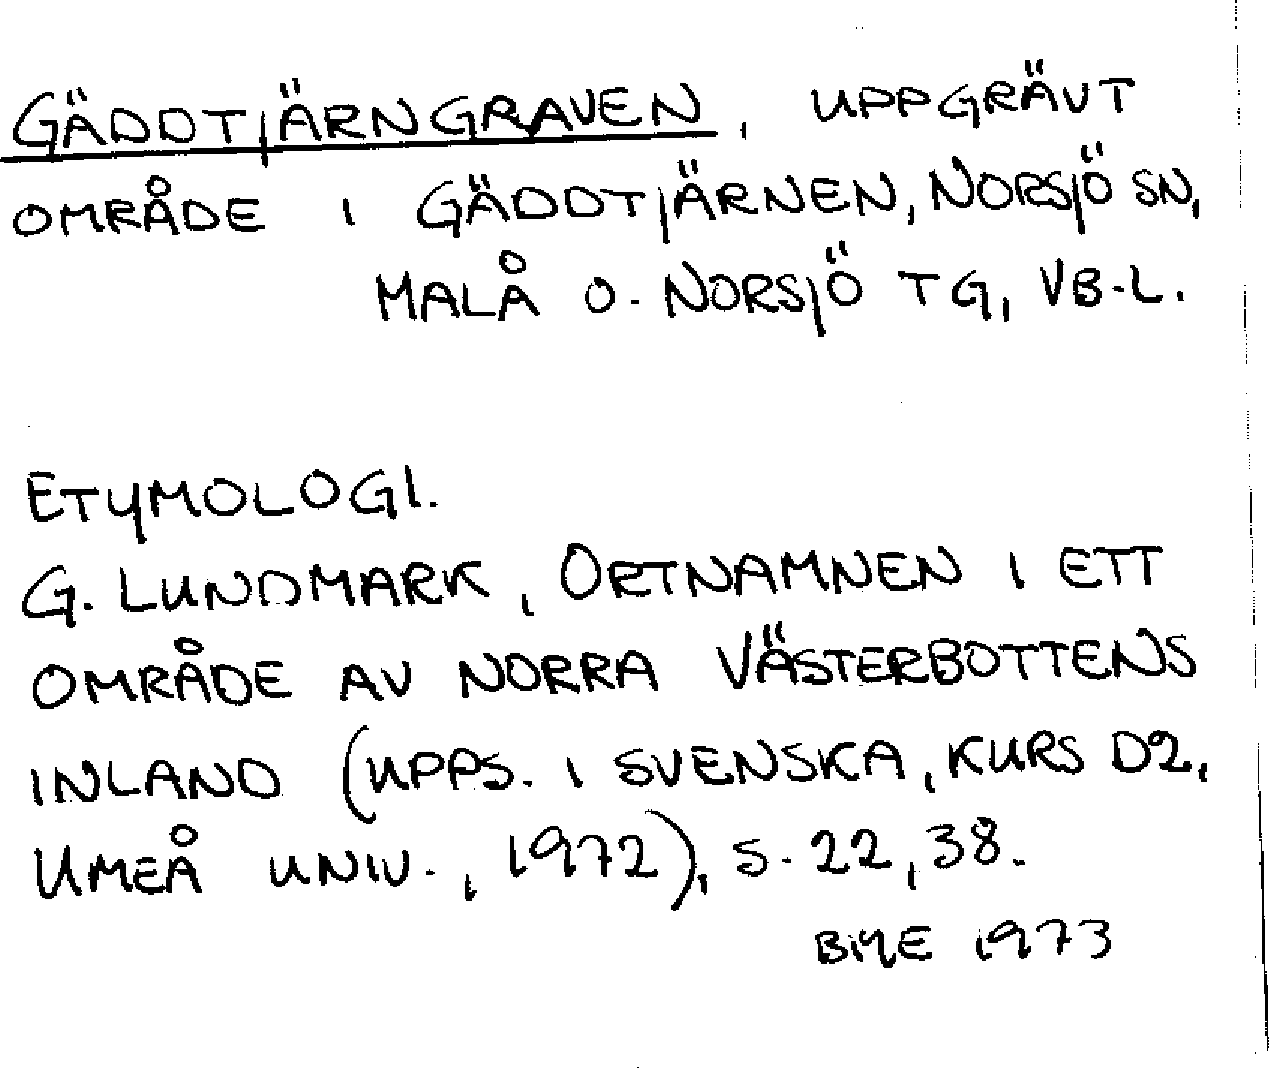 GÄDDTJÄRNGRAVEN, UPPGRÄVT
OMRÅDE I GÄDDTJÄRNEN, NORSJÖ SN,
MALÅ O. NORSJÖ TG, VB-L.
ETYMOLOGI.
G. LUNDMARK, ORTNAMNEN I ETT
OMRÅDE AV NORRA VÄSTERBOTTENS
INLAND (UPPS. I SVENSKA, KURS D2,
UMEÅ UNIV., 1972), S. 22, 38.
1973